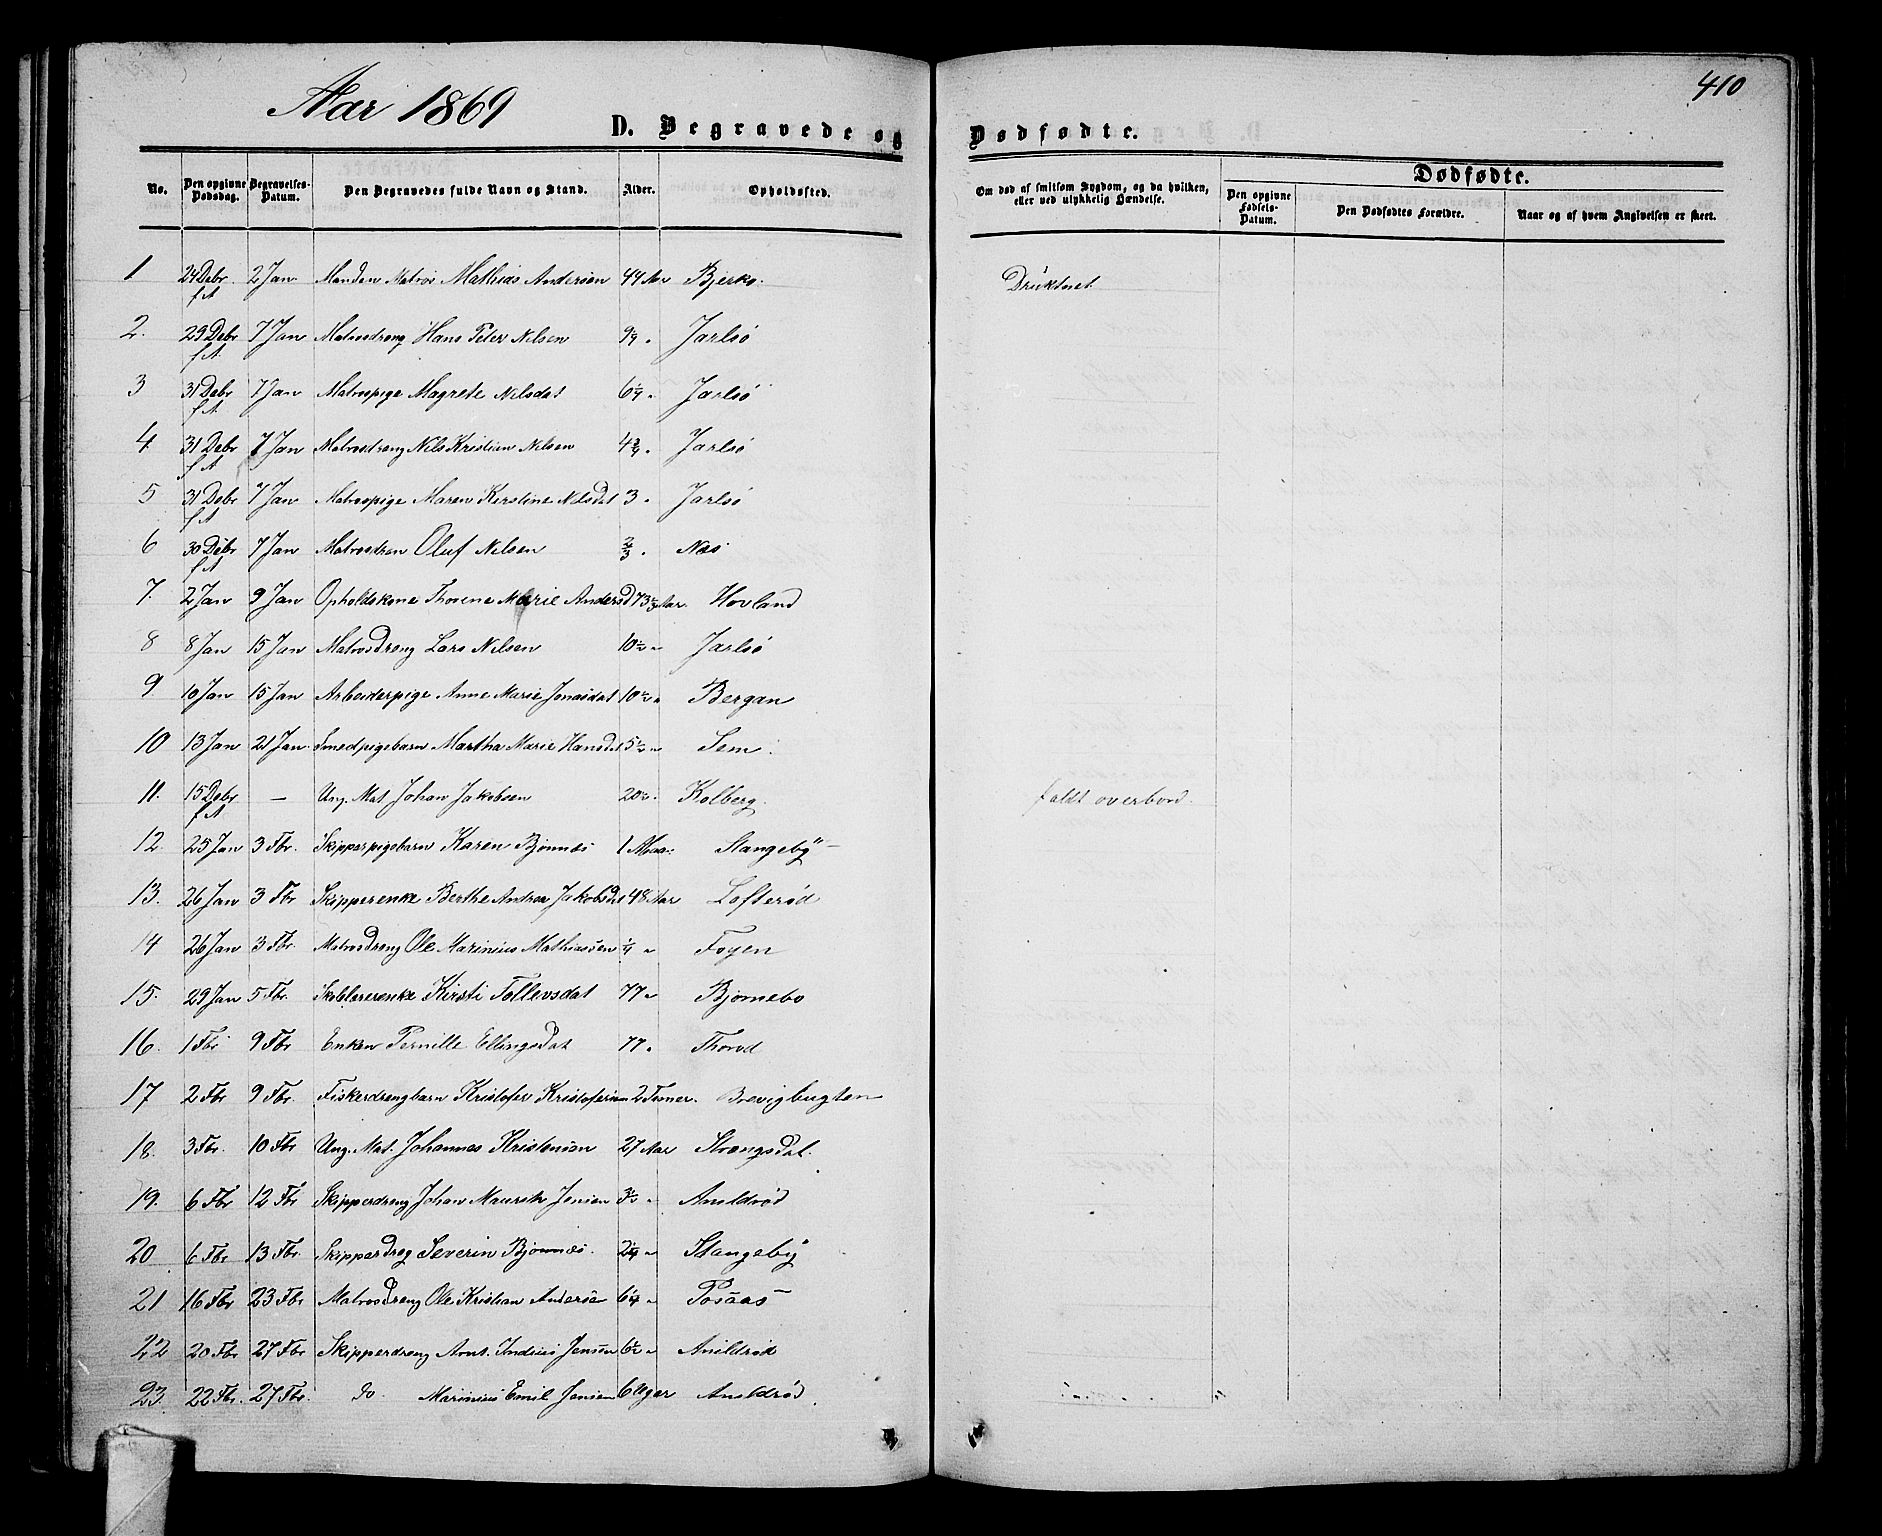 Aar 1869
410
D. Begravede og Dødfødte.
No. Den opgivne Dødsdag. Begravelses-Datum. Den Begravedes fulde Navn og Stand. Alder. Opholdssted. Om død af smitsom Sygdom, og da hvilken, eller ved ulykkelig Hændelse. Dødfødte. Den opgivne Fødsels-Datum. Den Dødfødtes Forældre. Naar og af hvem Angivelsen er skeet.
1 24 Debr f A 2 Jan Manden Matros Mathias Andersen 44 Aar Bjerkø. Druknet
2. 29 Debr f A 7 Jan Matrosdreng Hans Peter Nilsen 9 Jarlsø
3 31 Debr f A 7 Jan Matrospige Magrete Nilsdat 6 Jarlsø
4. 31 Debr f A 7 Jan Matrosdreng Nils Kristian Nilsen 4 Jarlsø
5 31 Debr f A 7 Jan Matrospige Maren Kerstine Nilsdat 3 Jarlsø
6 30 Debr f A 7 Jan Matrosdren Oluf Nilsen 2/3 Næs
7. 2 Jan 9 Jan Opholdskone Thorene Marie Andersd 73 1/2 Aar. Hovland
8 8 Jan 15 Jan Matrosdreng Lars Nilsen 10 1/2 " Jarlsø
9 10 Jan 15 Jan Arbeiderpige Anne Marie Jonasdat 10 1/2 " Bergan
10 13 Jan 21 Jan Smedpigebarn Martha Marie Hansdat 5 1/2 " Sem.
11. 15 Debr f A — Ung. Mat Johan Jakobsen 20 1/2 Kolberg. faldt overbord.
12. 25 Jan 3 Fbr. Skipperpigebarn Karen Bjønnæs 1 Maan: Stangeby
13. 26 Jan 3 Fbr Skipperenke Berthe Andrea Jakobsdt 48 Aar Lofterød
14 26 Jan 3 Fbr. Matrosdreng Ole Marinius Mathiassen 1/4 " Foyen
15. 29 Jan 5 Fbr. Kirsti Tollevsdat 77 " Bjørnebo
16. 1 Fbr 9 Fbr Enken Pernille Ellingsdat 77 " Thorød
17 2 Fbr 9 Fbr. Fiskerdrengbarn Kristofer Kristofersen 2 Timer. Brevigbugten
18. 3 Fbr. 10 Fbr Ung. Mat. Johannes Kristensen 27 Aar Strengsdal.
19. 6 Fbr 12 Fbr Skipperdreng Johan Jensen 3 1/2 " Anildrød
20 6 Fbr 13 Fbr. Skipperdreg Severin Bjønnæs. 2 1/4 " Stangeby
21 16 Fbr 23 Fbr Matrosdreng Ole Kristian Anderse 6 1/4 " Rosaas
22 20 Fbr 27 Fbr Skipperdreng Arnt. Indius Jensen 6 1/2 " Anildrød
23. 22 Fbr. 27 Fbr. do. Marinius Emil Jensen 6 Uger Anildrød.